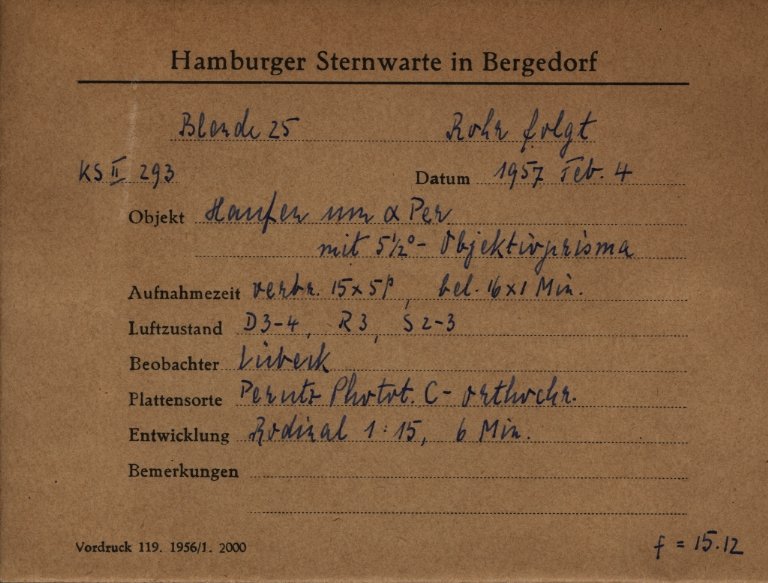 Hamburger Sternwarte in Bergedorf
Blende 25 Rohr folgt
KS II 293 Datum 1957 Feb. 4
Objekt Haufen um α Per
mit 5½°- Objektivprisma
Aufnahmezeit verbr. 15x5P, bel. 16x1 Min.
Luftzustand D3-4, R3, S2-3
Beobachter Lübeck
Plattensorte Perutz Photot. C- orthochr.
Entwicklung Rodinal 1:15, 6 Min.
Bemerkungen
Vordruck 119. 1956/1. 2000 f = 15.12